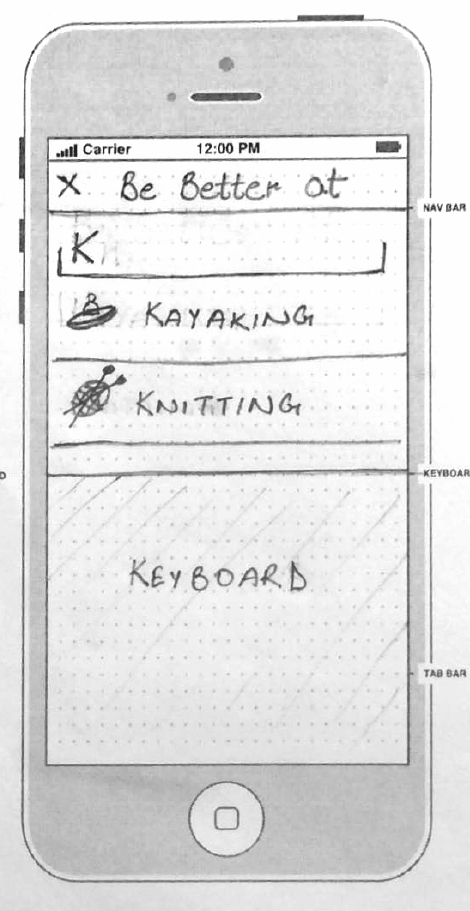 Carrier 12:00 PM
X Be Better at
NAV BAR
K
KAYAKING
KNITTING
KEYBOARD
TAB BAR